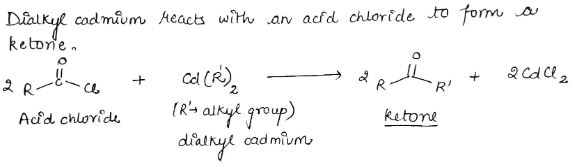 Dialkyl cadmium reacts with an acid chloride to form a
ketone.
2 R-C(=O)-Cl + Cd(R')2 ⟶ 2 R-C(=O)-R' + 2CdCl2
Acid chloride (R'→ alkyl group) ketone
dialkyl cadmium